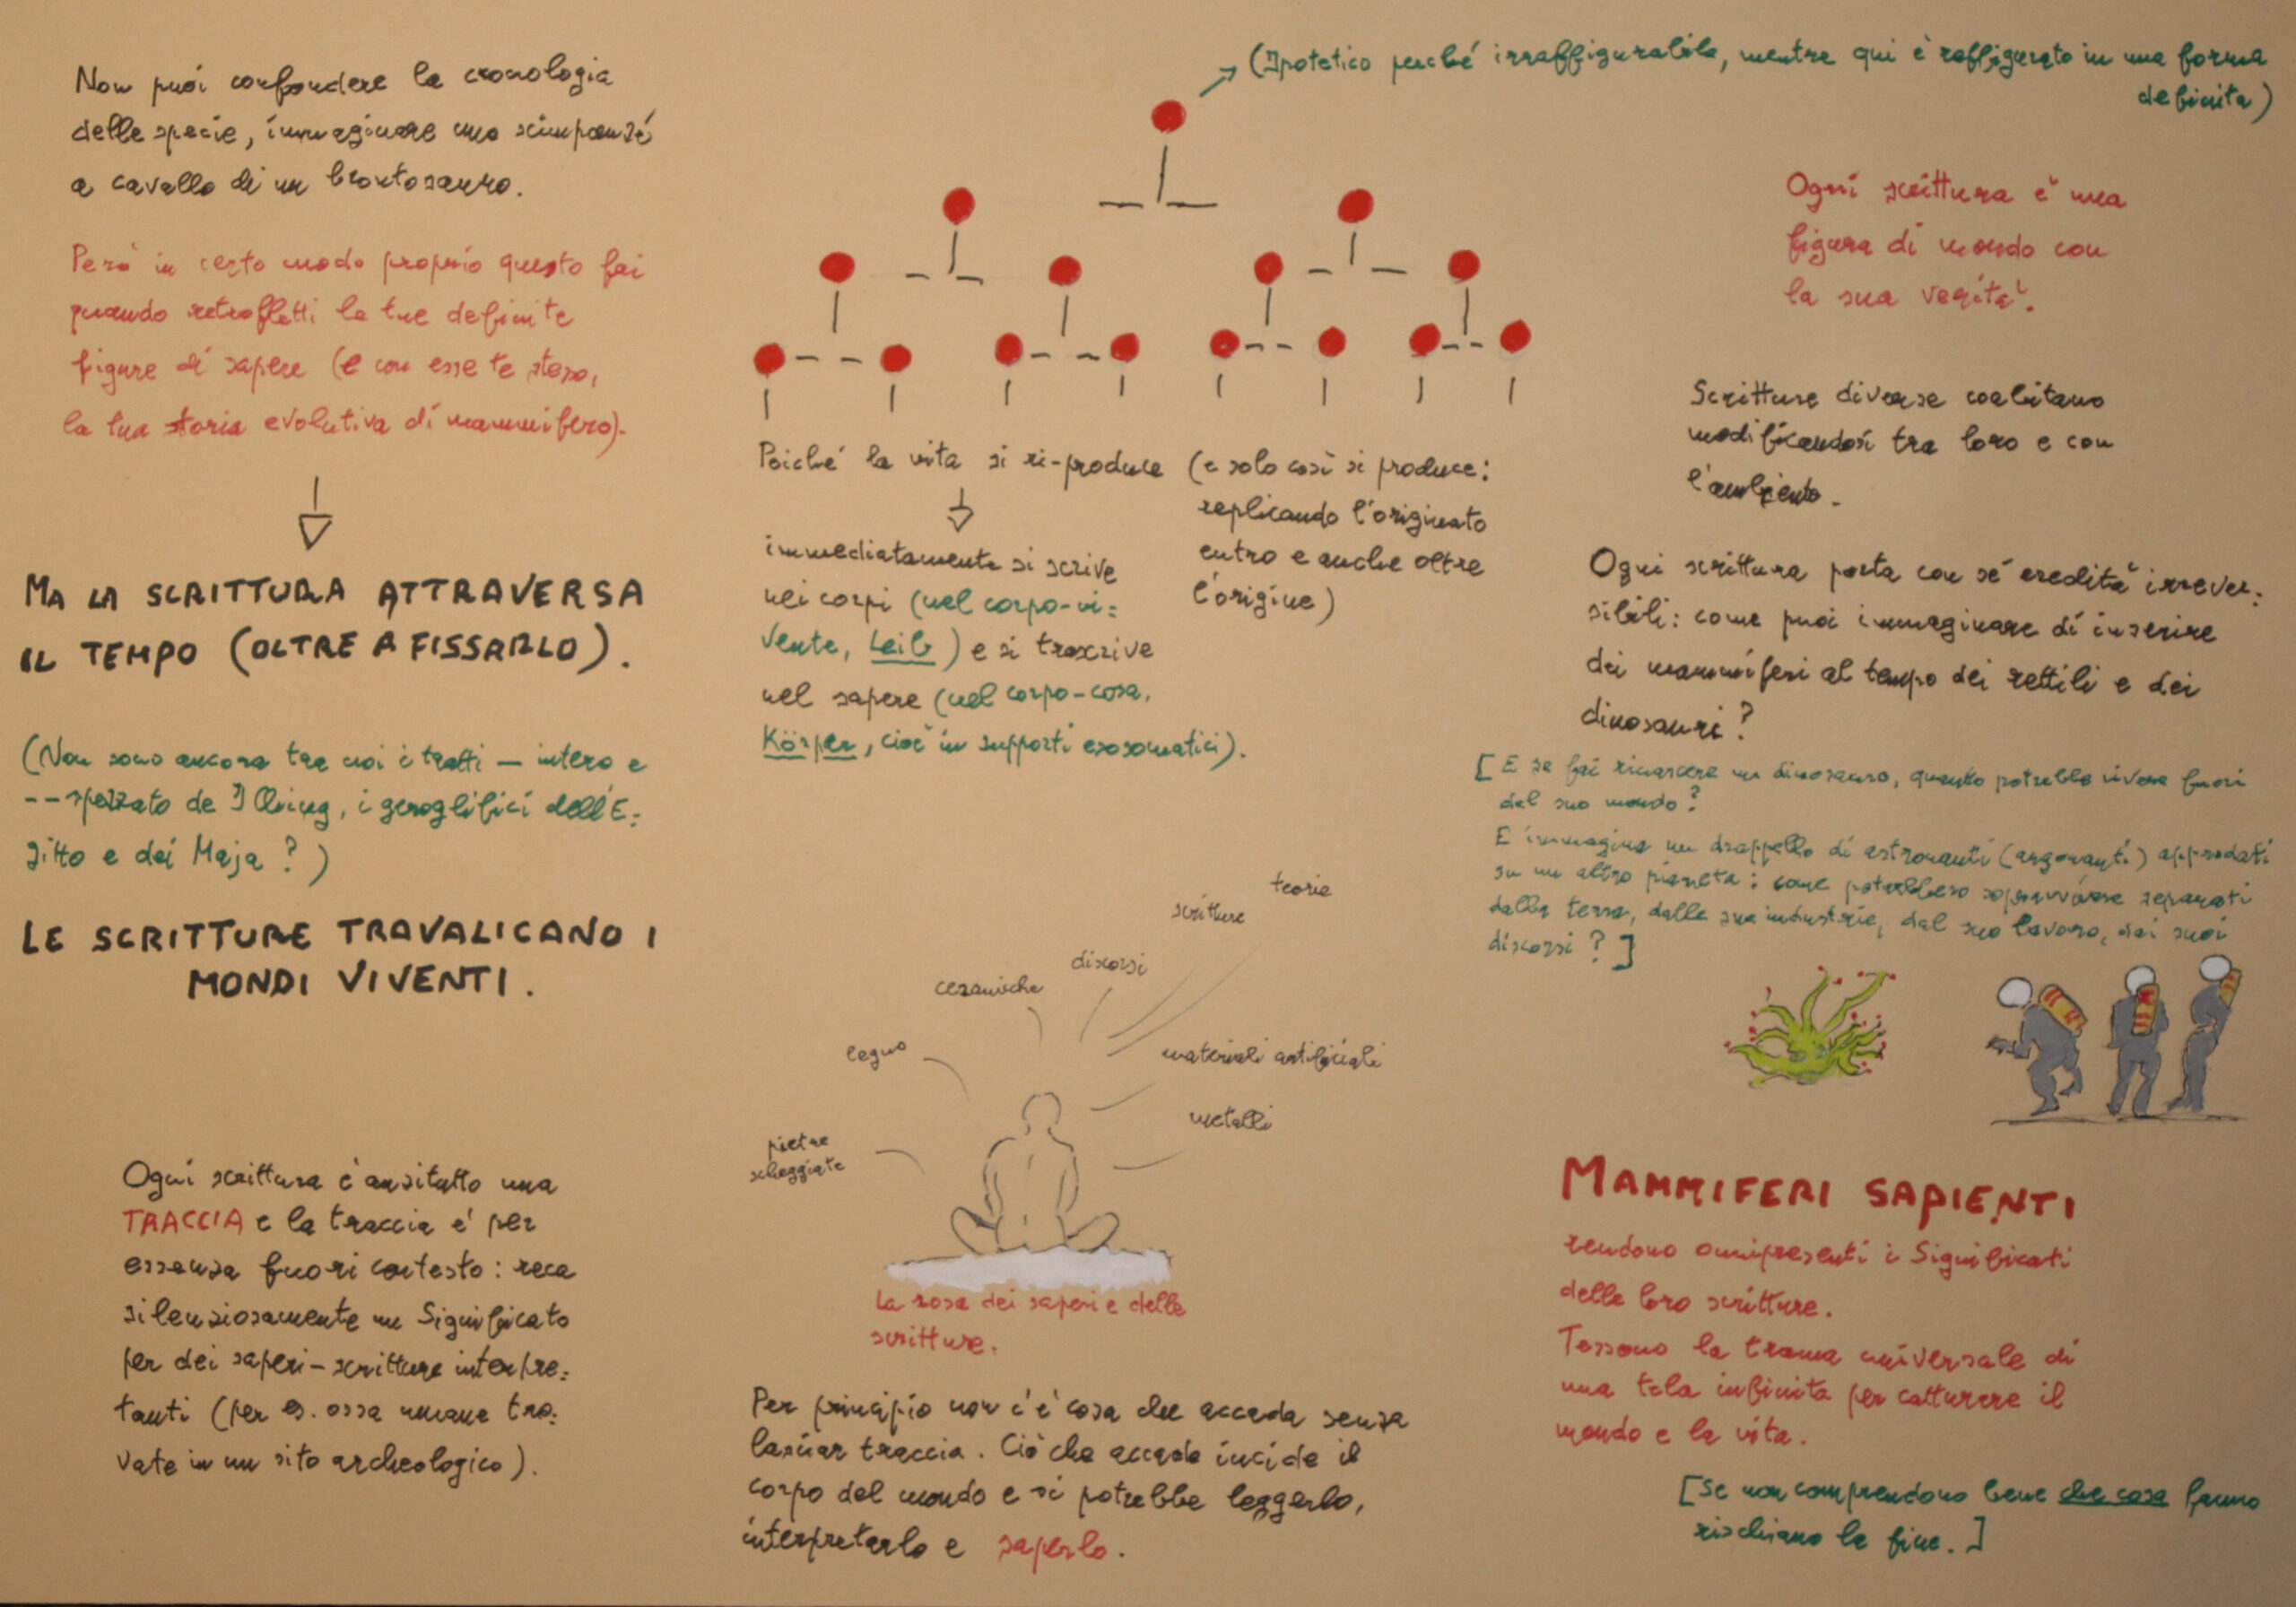 Non puoi confondere la cronologia
delle specie, immaginare uno scimpanzé
a cavallo di un brontosauro.
Però in certo modo proprio questo fai
quando retrofletti le tue definite
figure di sapere (e con esse te stesso,
la tua storia evolutiva di mammifero).
MA LA SCRITTURA ATTRAVERSA
IL TEMPO (OLTRE A FISSARLO).
(Non sono ancora tra noi i tratti — intero e
-- spezzato de I Qving, i geroglifici dell'E=
gitto e dei Maja ?)
LE SCRITTURE TRAVALICANO I
MONDI VIVENTI.
Ogni scrittura è anzitutto una
TRACCIA e la traccia è per
essenza fuori contesto: reca
silenziosamente un Significato
per dei saperi-scritture interpre=
tanti (per es. ossa umane tro=
vate in un sito archeologico).
(Ipotetico perché irraffigurabile, mentre qui è raffigurato in una forma
definita)
Poiché la vita si ri-produce (e solo così si produce:
replicando l'originato
entro e anche oltre
l'origine)
immediatamente si scrive
nei corpi (nel corpo-vi=
vente, Leib) e si trascrive
nel sapere (nel corpo-cosa,
Körper, cioè in supporti esosomatici).
teorie
scritture
discorsi
ceramiche
legno
materiali artificiali
metalli
pietre
scheggiate
La rosa dei saperi e delle
scritture.
Per principio non c'è cosa che accada senza
lasciar traccia. Ciò che accade incide il
corpo del mondo e si potrebbe leggerlo,
interpretarlo e saperlo.
Ogni scrittura è una
figura di mondo con
la sua verità.
Scritture diverse coabitano
modificandosi tra loro e con
l'ambiente.
Ogni scrittura porta con sé eredità irrever=
sibili: come puoi immaginare di inserire
dei mammiferi al tempo dei rettili e dei
dinosauri?
[E se fai rinascere un dinosauro, quanto potrebbe vivere fuori
dal suo mondo?
E immagina un drappello di astronauti (argonauti) approdati
su un altro pianeta: come potrebbero sopravvivere separati
dalla terra, dalle sue industrie, dal suo lavoro, dai suoi
discorsi?]
MAMMIFERI SAPIENTI
rendono onnipresenti i Significati
delle loro scritture.
Tessono la trama universale di
una tela infinita per catturare il
mondo e la vita.
[Se non comprendono bene che cosa fanno
rischiano la fine.]